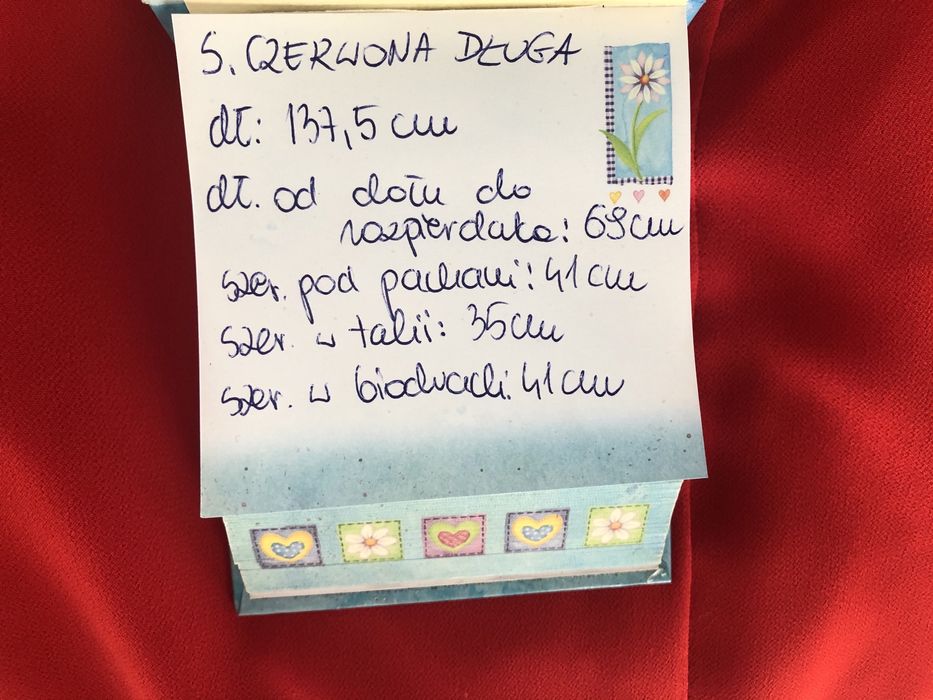 S. CZERWONA DŁUGA
dł: 137,5 cm
dł. od dołu do
rozpierdaka: 69cm
szer. pod pachami: 41 cm
szer. w talii: 35cm
szer. w biodrach: 41cm